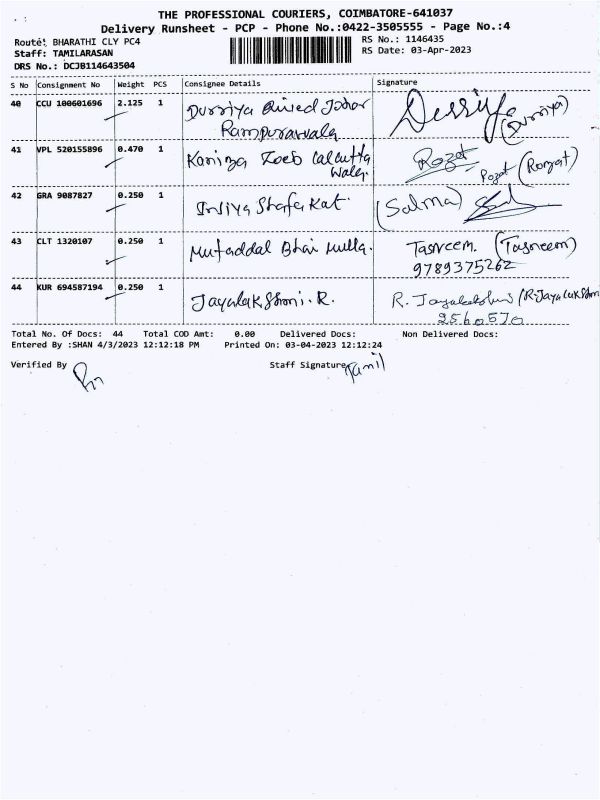 THE PROFESSIONAL COURIERS, COIMBATORE-641037
Delivery Runsheet - PCP - Phone No.:0422-3505555 - Page No.:4
Route: BHARATHI CLY PC4
RS No.: 1146435
Staff: TAMILARASAN
RS Date: 03-Apr-2023
DRS No.: DCJB114643504
S No Consignment No Weight PCS Consignee Details Signature
40 CCU 100601696 2.125 1 Durriya Johar (Durriya)
Rampurawala
41 VPL 520155896 0.470 1 Kaniza Zoeb Calcutta Rozat
Wala. Rozat
42 GRA 9087827 0.250 1 Insiya Shafakat (Salma)
43 CLT 1320107 0.250 1 Mufaddal Bhai Mulla. Tasneem. (Tasneem)
9789375262
44 KUR 694587194 0.250 1 Jayalakshmi. R. R. Jayalakshmi (R.Jayalakshmi
2560570
Total No. Of Docs: 44 Total COD Amt: 0.00 Delivered Docs: Non Delivered Docs:
Entered By :SHAN 4/3/2023 12:12:18 PM Printed On: 03-04-2023 12:12:24
Verified By Staff Signature Tamil